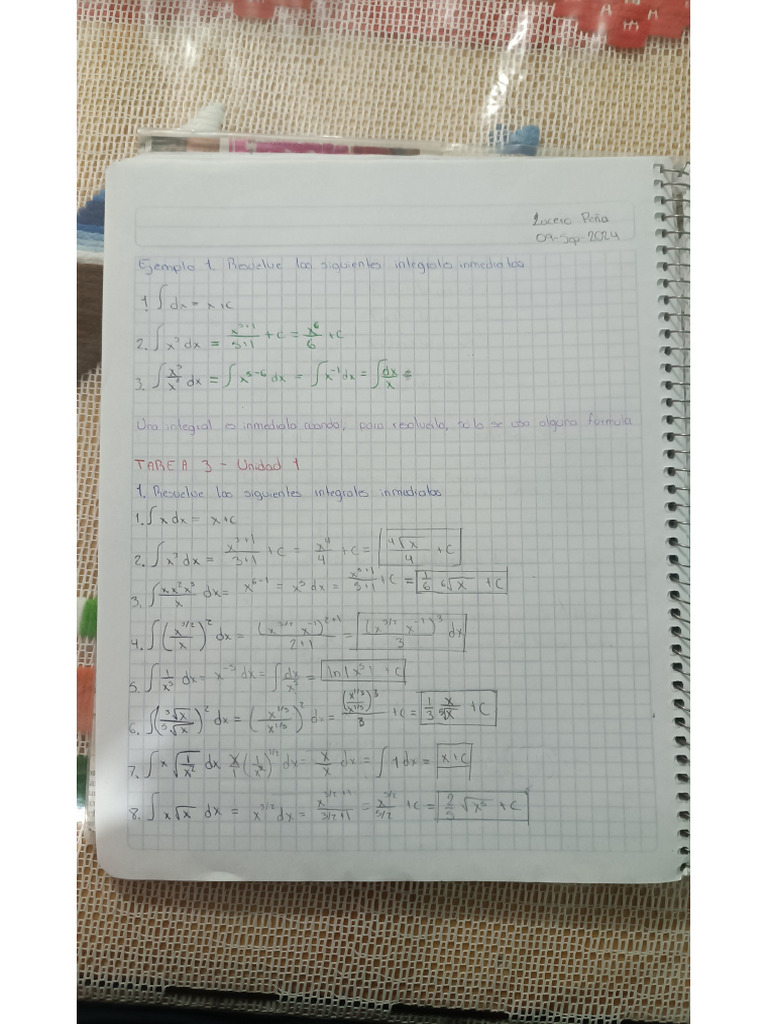 Lucero Peña
09-Sep-2024
Ejemplo 1. Resuelve las siguientes integrales inmediatas
1. ∫ dx = x + c
2. ∫ x⁵ dx = x⁵⁺¹/5+1 + c = x⁶/6 + c
3. ∫ x⁵/x⁶ dx = ∫ x⁵⁻⁶ dx = ∫ x⁻¹ dx = ∫ dx/x =
Una integral es inmediata cuando, para resolverla, solo se usa alguna formula
TAREA 3 - Unidad 1
1. Resuelve las siguientes integrales inmediatas
1. ∫ x dx = x + c
2. ∫ x³ dx = x³⁺¹/3+1 + c = x⁴/4 + c = ⁴√x/4 + c
3. ∫ xx²x³/x dx = x⁶⁻¹ = x⁵ dx = x⁵⁺¹/5+1 + c = 1/6 ⁶√x + c
4. ∫ (x³ᐟ²/x)² dx = (x³ᐟ² x⁻¹)²⁺¹/2+1 = (x³ᐟ² x⁻¹)³/3 dx
5. ∫ 1/x⁵ dx = x⁻⁵ dx = ∫ dx/x⁵ = ln|x⁵| + c
6. ∫ (³√x/⁵√x)² dx = (x¹ᐟ³/x¹ᐟ⁵)² dx = (x¹ᐟ³/x¹ᐟ⁵)³/3 + c = 1/3 x/⁵√x + c
7. ∫ x √1/x² dx x/1 (1/x²)¹ᐟ² dx = x/x dx = ∫ 1 dx = x + c
8. ∫ x√x dx = x³ᐟ² dx = x³ᐟ²⁺¹/3/2+1 = x⁵ᐟ²/5/2 + c = 2/5 √x⁵ + c